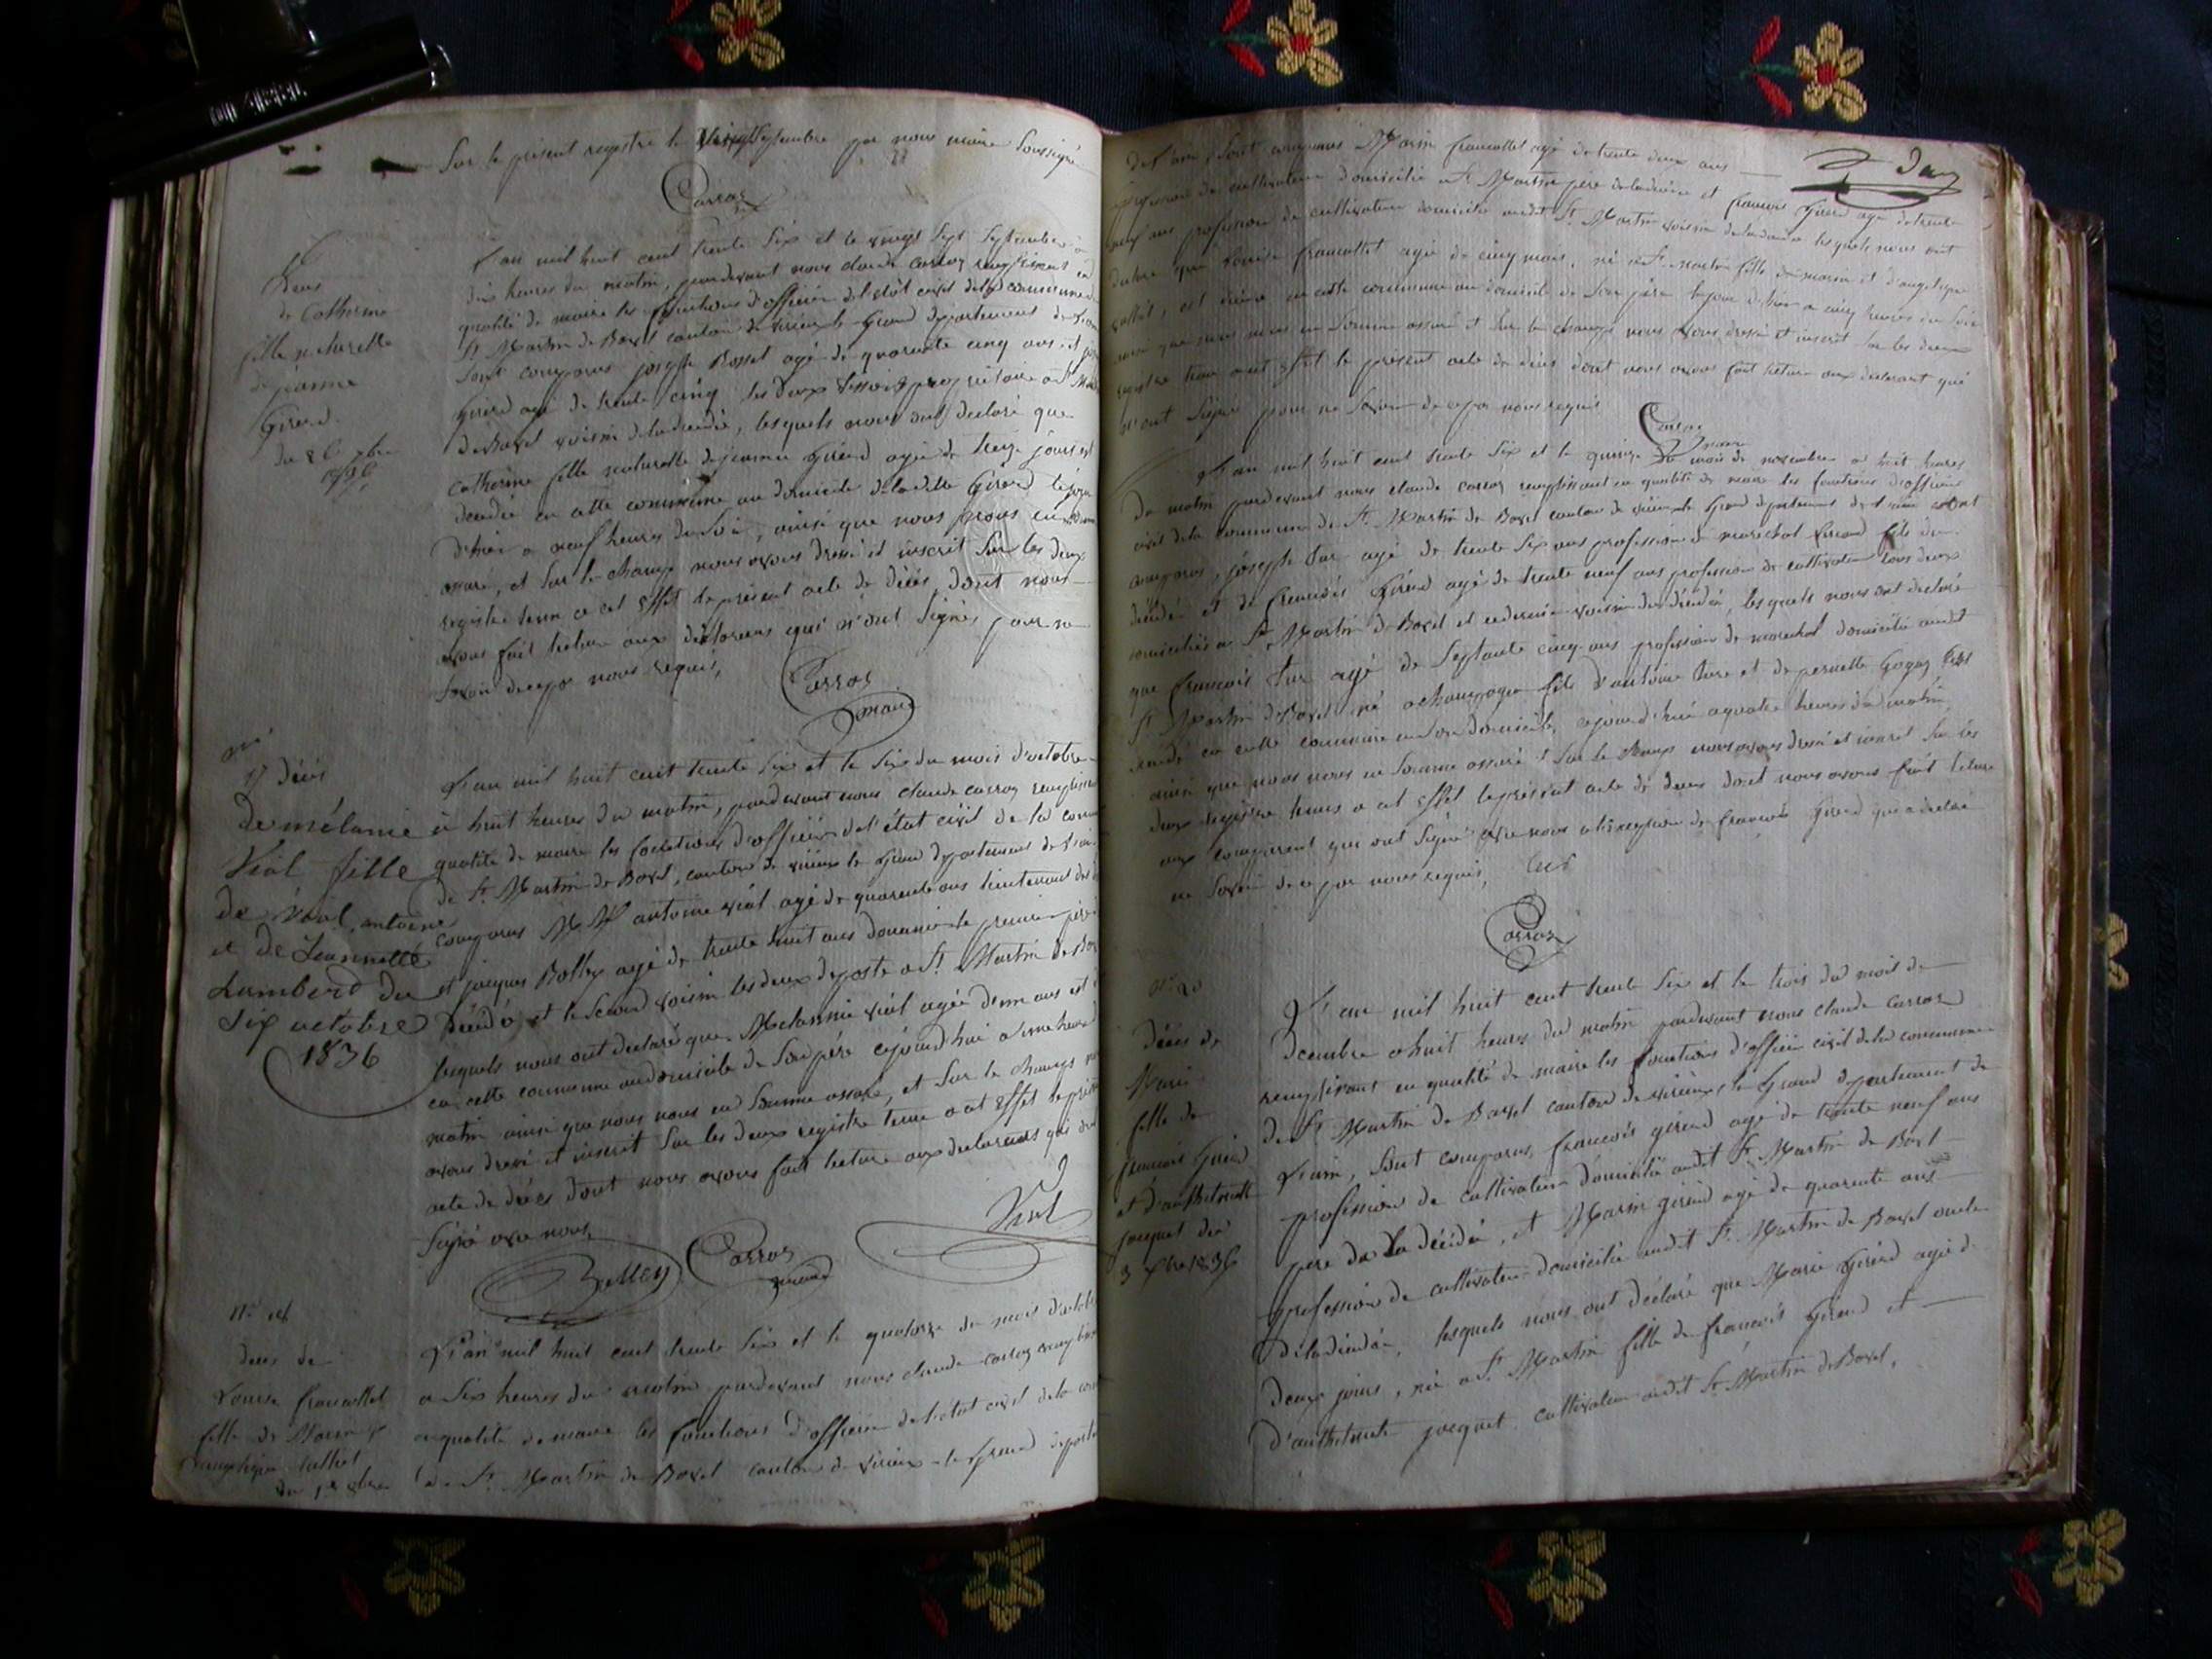 Sur le présent registre le vingt Septembre par nous maire Soussigné
Carros
de Catherine
fille naturelle
de jeanne
Girend
L'an mil huit cent trente Six et le vingt Sept Septembre a
dix heures du matin, pardevant nous claude carros remplissant en
qualité de maire les fonctions d'officier de l'etât civil de la commune de
St. Martin de Bavel canton de virieux le Grand departement de
Sont comparus joseph Rosset agé de quarente cinq ans et
Girend agé de trente cinq les deux propriétaire a St
de Bavel voisin de la decédée, lesquels nous ont declaré que
catherine fille naturelle de jeanne Girend agée de treize jours est
decedée en cette commune au domicile de la dite Girend le jour
d'hier a neuf heures du Soir, ainsi que nous nous en
assuré, et Sur le champ nous avons dressé et inscrit Sur les deux
registre tenu a cet effet le présent acte de décés dont nous
avons fait lecture aux déclarans qui n'ont Signés pour ne
Savoir de ce par nous requis,
Carros
maire
17 décés
de mélanie
Vial fille
de Vial, antoine
et de Jeannette
Lumberd du
Six octobre
1836
L'an mil huit cent trente Six et le Six du mois d'octobre
à huit heures du matin, pardevant nous claude carros remplissant
qualité de maire les fonctions d'officier de l'état civil de la
de St. Martin de Bavel, canton de virieux le Grand departement de
comparus antoine vial agé de quarente ans lieutenant des
et jacques Bolley agé de trente huit ans douanier le premier père
décédé et le Second voisin les deux de poste a St. Martin de
lesquels nous ont declaré que Melannie vial agée d'un ans est
en cette commune au domicile de Son père cejourd'hui a une heure
matin ainsi que nous nous en Somme assuré, et Sur le champs
avons dressé et inscrit Sur les deux registre tenu a cet effet le
acte de décés dont nous avons fait lecture aux declarans qui
Signé avec nous
Bolley
Carros
maire
Vial
déces de
Louise francallet
fille de Marin &
L'an mil huit cent trente Six et le quatorze du mois
a Six heures du matin pardevant nous claude carros
en qualité de maire les fonctions d'officier de l'etat civil de la
de St. Martin de Bavel canton de virieux le Grand
de l'ain, Sont comparus Marin francallet agé de trente deux ans
profession de cultivateur domicilié a St. Martin père de la décédée et francois Girend agé de trente
neuf ans profession de cultivateur domicilié audit St. Martin voisin de la décédée lesquels nous ont
declaré que Louise francallet agée de cinq mois, né a St. Martin fille de marin et d'angelique
est décédée en cette commune au domicile de Son père le jour d'hier a cinq heures du Soir
ainsi que nous nous en Somme assuré et Sur le champs nous avons dressé et inscrit Sur les deux
registre tenu a cet effet le présent acte de décés dont nous avons fait lecture aux declarant qui
n'ont Signé pour ne Savoir de ce par nous requis
Carros
maire
L'an mil huit cent trente Six et le quinze du mois de novembre a huit heures
du matin pardevant nous claude carros remplissant en qualité de maire les fonctions d'officier
civil de la commune de St. Martin de Bavel canton de virieux le Grand departement de l'ain sont
comparus, joseph agé de trente Six ans profession de marechal ferrand fils du
décédé et de francois Girend agé de trente neuf ans profession de cultivateur tous deux
domiciliés a St. Martin de Bavel et ce dernier voisin du décédé, lesquels nous ont declaré
que francois agé de Septante cinq ans profession de marechal domicilié audit
St. Martin de Bavel né a champagne fils d'antoine et de pernette est
décédé en cette commune en Son domicile, cejourd'hui a quatre heures du matin,
ainsi que nous nous en Somme assuré et Sur le champs nous avons dressé et inscrit Sur les
deux registre tenus a cet effet le présent acte de décés dont nous avons fait lecture
aux comparant qui ont Signé avec nous a l'exception de francois Girend qui a declaré
ne Savoir de ce par nous requis,
Carros
Décés de
Marie
fille de
francois Girend
et d'anthelmette
jacquet du
3 Xbre 1836
L'an mil huit cent trente Six et le trois du mois de
decembre a huit heures du matin pardevant nous claude carros
remplissant en qualité de maire les fonctions d'officier civil de la commune
de St. Martin de Bavel canton de virieux le Grand departement de
L'ain, Sont comparus, francois girend agé de trente neuf ans
profession de cultivateur domicilié audit St. Martin de Bavel
pere de la décédée, et Marin girend agé de quarente ans
profession de cultivateur domicilié audit St. Martin de Bavel oncle
de la décédée, lesquels nous ont déclaré que Marie Girend agée de
deux jours, née a St. Martin fille de francois Girend et
d'anthelmette jacquet cultivateur audit St. Martin de Bavel,